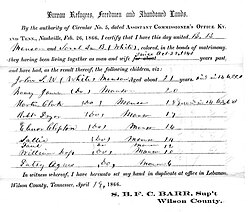 Bureau Refugees, Freedmen and Abandoned Lands.
By the authority of Circular No. 5, dated ASSISTANT COMMISSIONER'S OFFICE KY.
AND TENN., Nashville, Feb. 26, 1866, I certify that I have this day united B. B.
Manson and Sarah Ann B. (White), colored, in the bonds of matrimony,
they having been living together as man and wife for about since Oct 31, 1843 years
past, and have had, as the result thereof, the following children, viz:
John S. W. (White) Manson, aged about 21 years
Nancy Jane (Do) Manson
Martin Clark (Do) Manson
(Do) Manson 17
(Do) Manson 14
Sallie
William (Do) Manson 10
(Do) Manson 6
In witness whereof, I have hereunto set my hand in duplicate at office in Lebanon,
Wilson County, Tennessee, April 19, 1866.
S. B. F. C. BARR, Sup't
Wilson County.